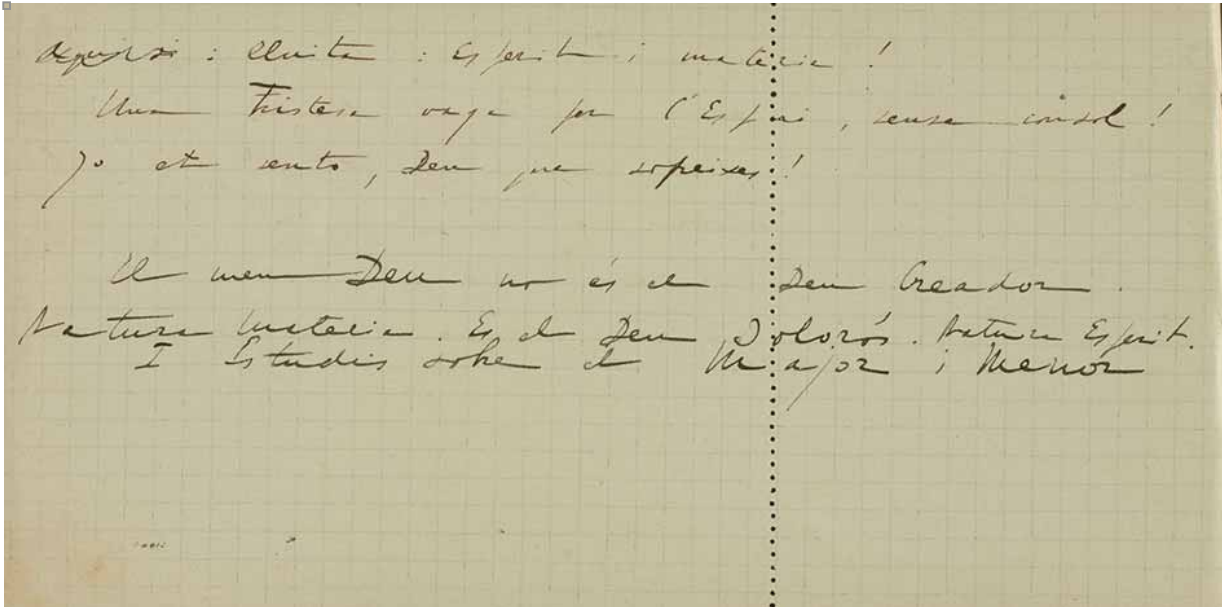 : lluita : Esperit i matèria !
Una Tristesa vaga per l'Espai, sense cònsol !
Jo et sento, Deu que sofreixes !
El meu Deu no és el Deu Creador.
Natura Materia. Es el Deu Dolorós. Natura Esperit.
I Estudis sobre el Major i Menor